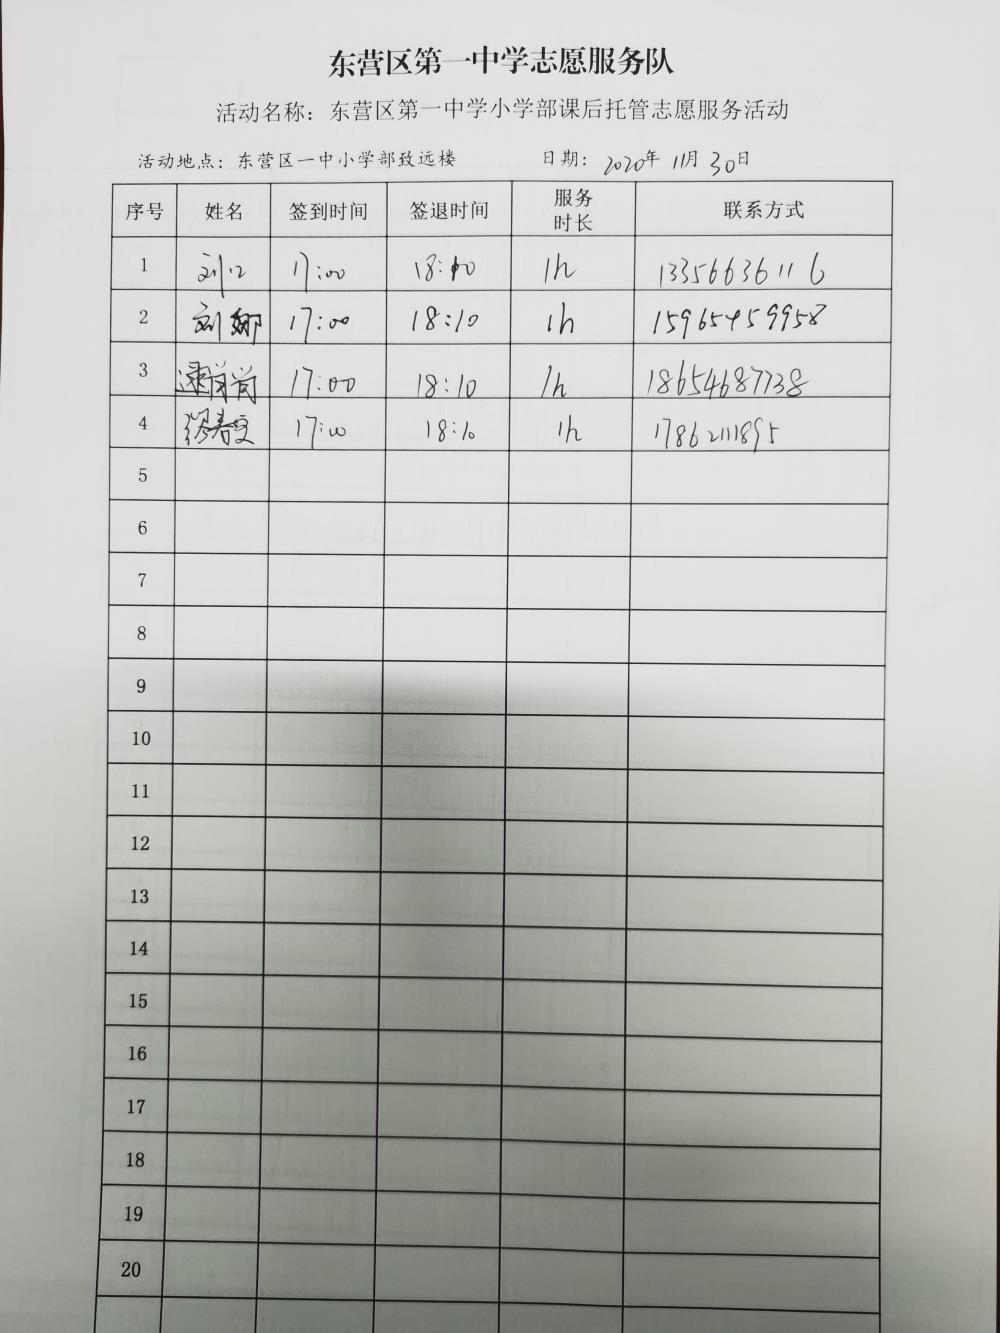 东营区第一中学志愿服务队
活动名称：东营区第一中学小学部课后托管志愿服务活动
活动地点：东营区一中小学部致远楼 日期：2020年 11月 30日
序号 姓名 签到时间 签退时间 服务时长 联系方式
1 刘 17:00 18:10 1h 13356636116
2 刘娜 17:00 18:10 1h 15965459958
3 17:00 18:10 1h 18654687738
4 17:00 18:10 1h 17862111895
5
6
7
8
9
10
11
12
13
14
15
16
17
18
19
20